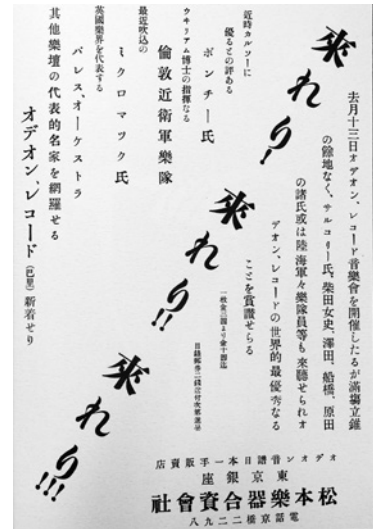 來れり!
去月十三日オデオン、レコード音樂會を開催したるが滿塲立錐
の餘地なく、サルコリー氏、柴田女史、澤田、船橋、原田
の諸氏或は陸海軍々樂隊員等も來聽せられオ
デオン、レコードの世界的最優秀なる
ことを賞讃せらる
一枚金三圓より金十圓迄
目錄郵券二錢送付次第進呈
來れり!!
近時カルソーに
優るとの評ある
ボンチー氏
ウキリアム博士の指揮なる
倫敦近衛軍樂隊
最近吹込の
ミクロマツク氏
英國樂界を代表する
パレス、オーケストラ
其他樂壇の代表的名家を網羅せる
オデオン、レコード(巴里)新着せり
來れり!!!
オデオン音譜日本一手販賣店
東京銀座
松本樂器合資會社
電話京橋二二九八